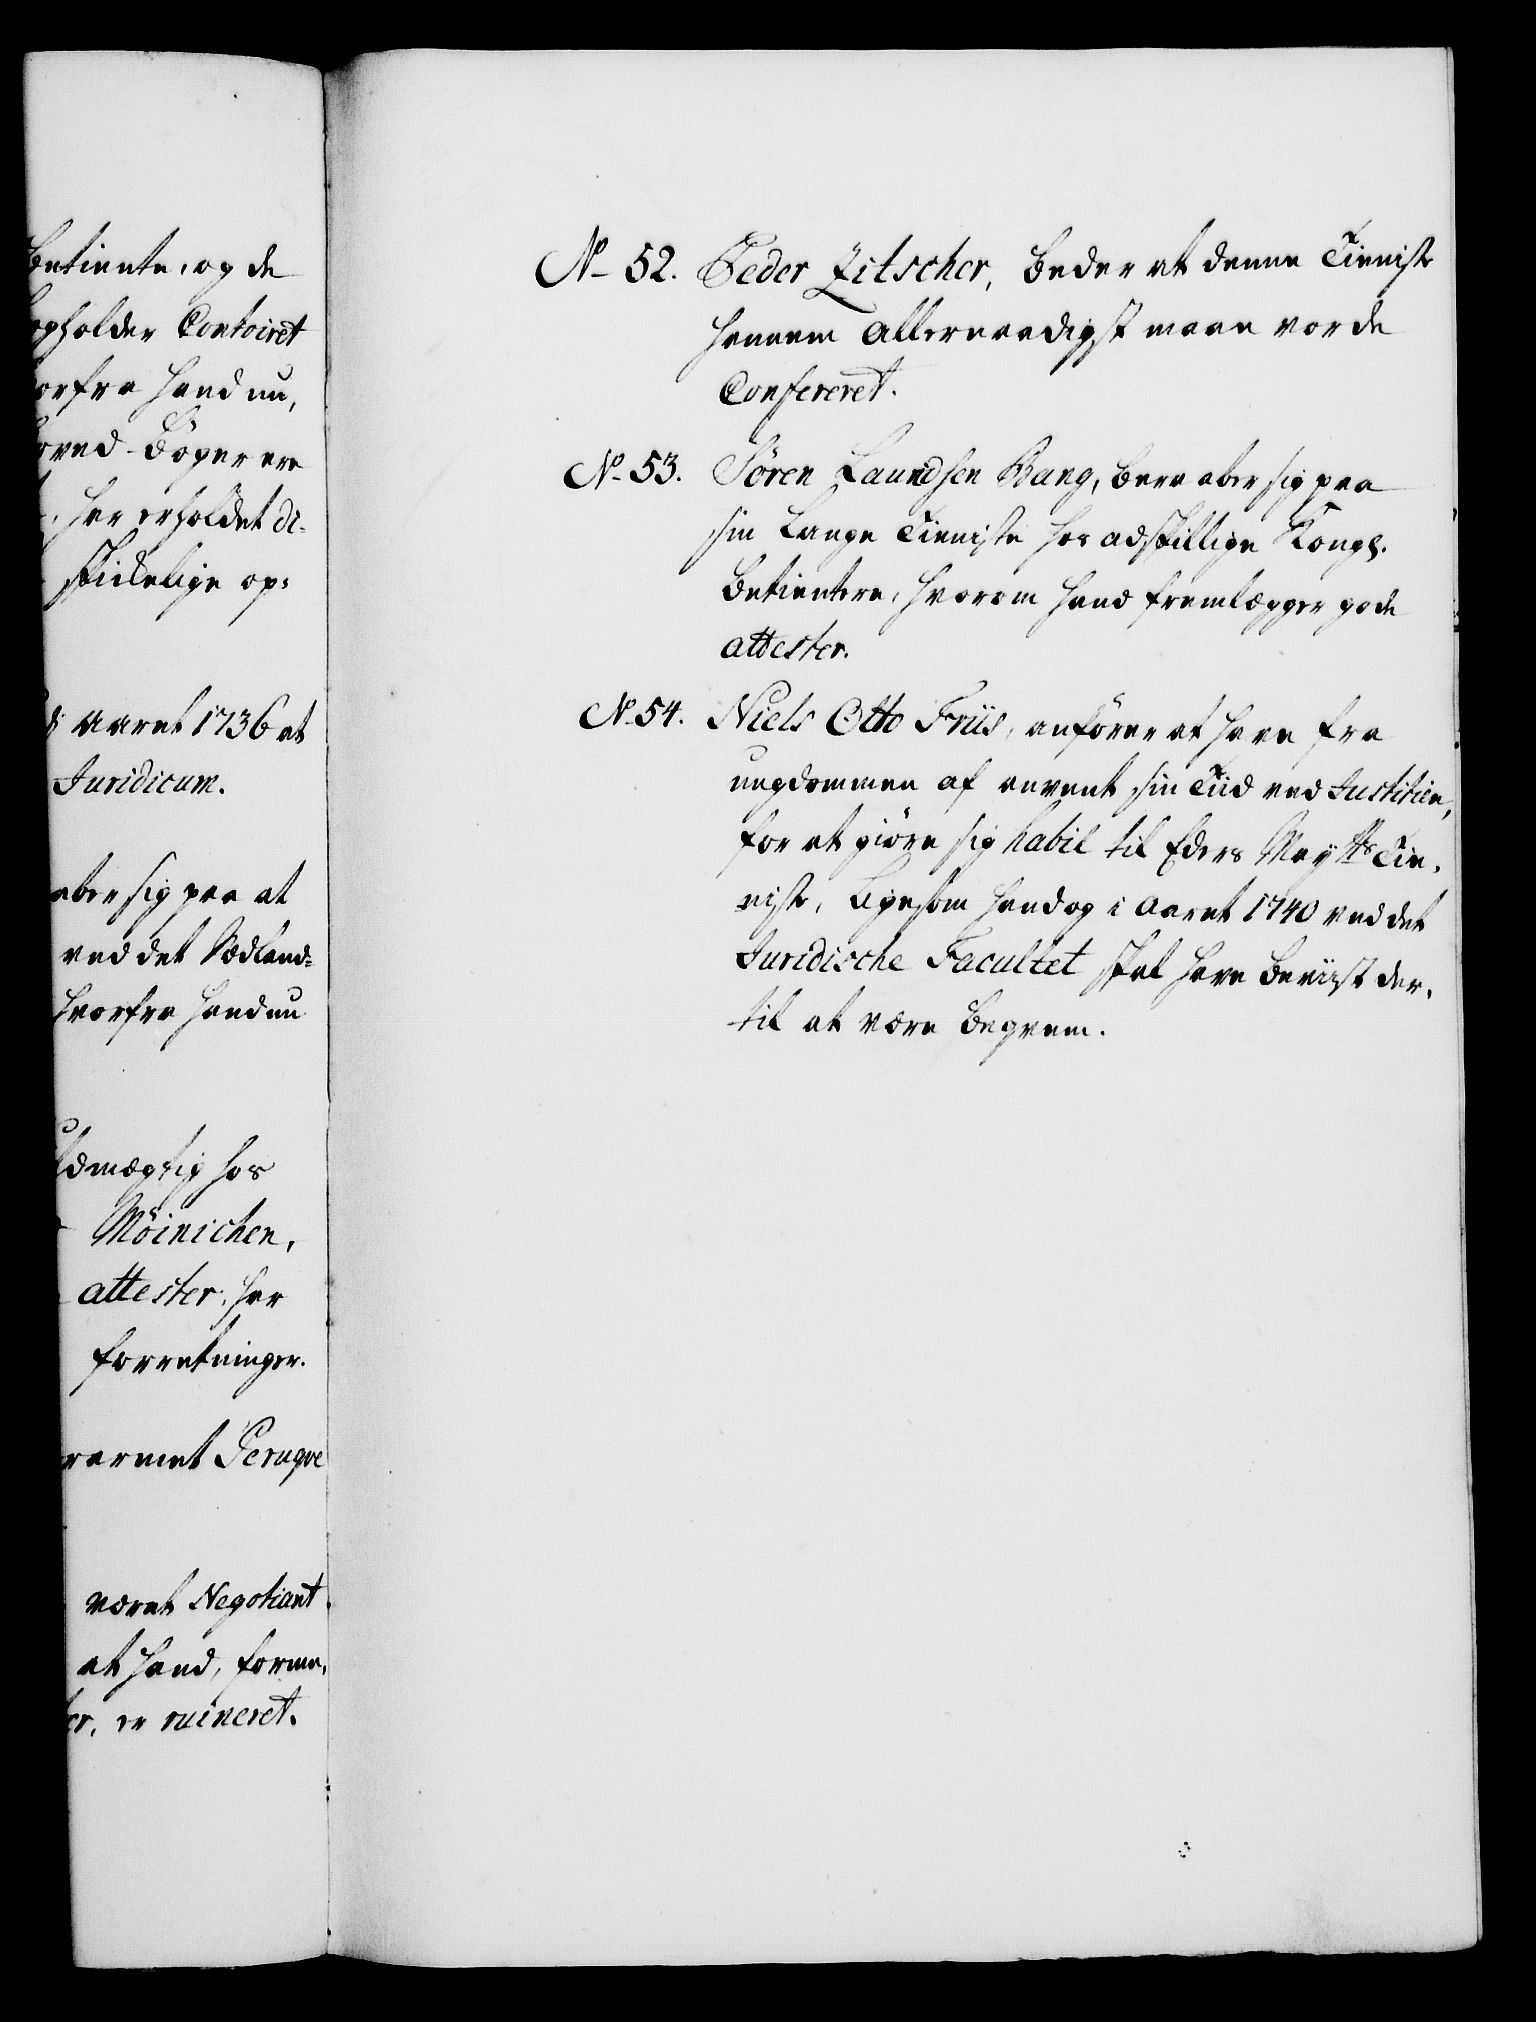 Betiente, og de
opholder Contoiret
orfra hand nu,
oved-Bøger ere
, har erholdet di-
skickelige op:
Aaret 1736 at
Juridicum.
aber sig paa at
ved det Sædland-
hvorfra hand nu
ldmægtig hos
Möinichen,
attester, har
forretninger.
rarmet Peruqve
været Negotiant
at hand, forme,
er, er ruineret.
No 52. Peder Zitscher, beder at denne Tieniste
hannem Allernaadigst maae vorde
Confereret.
No 53. Sören Lauridsen Bang, beraaber sig paa
sin lange Tieniste hos adskillige Kongl.
Betientere, hvorom hand fremlægger gode
attester.
No 54. Niels Otto Friis, anförer at have fra
ungdommen af anvent sin Tiid ved Justitien,
for at giöre sig habil til Eders Mayts Tie,
niste, ligesom hand og i Aaret 1740 ved det
Juridische Facultet skal have beviist der,
til at være beqvem.